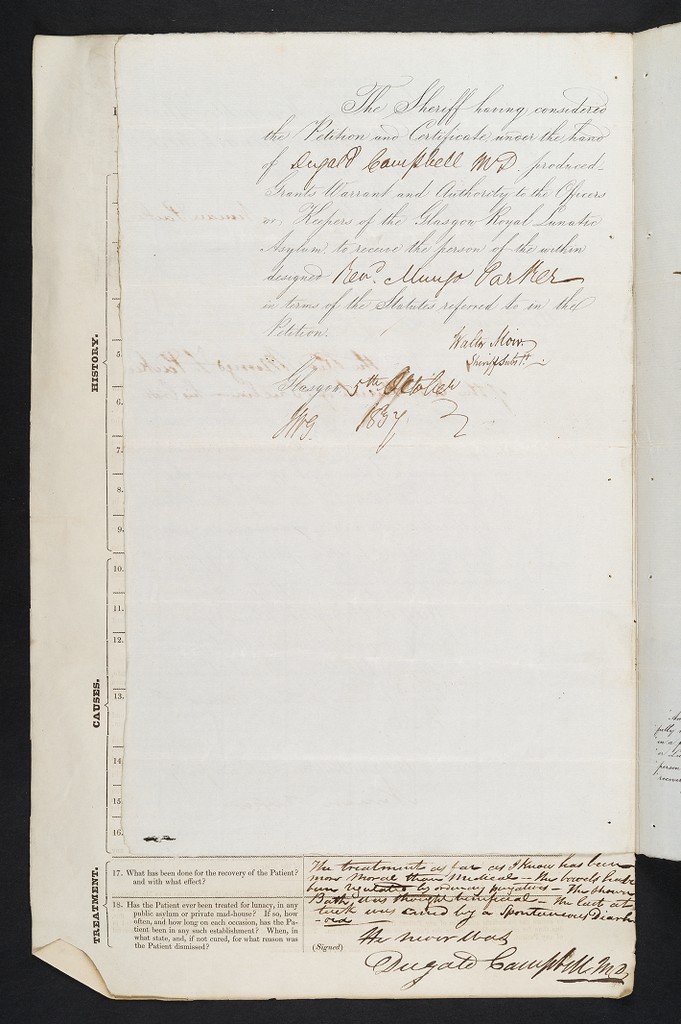 The Sheriff having considered
the Petition and Certificate under the hand
of Dugald Campbell M.D. produced
Grants Warrant and Authority to the Officers
or Keepers of the Glasgow Royal Lunatic
Asylum, to receive the person of the within
designed Revd. Mungo Parker
in terms of the Statutes referred to in the
Petition.
Walter Moir
Sheriff Substt.
Glasgow 5th October
1857
HISTORY.
4
5
6
7.
8.
9.
10.
11.
12.
CAUSES.
13.
14
15
16.
TREATMENT.
17. What has been done for the recovery of the Patient?
and with what effect?
The treatment as far as I know has been
more Moral than Medical – The bowels have
been regulated by ordinary purgatives – The shower
Bath was thought beneficial – The last at
tack was cured by a Spontaneous Diarrhœ
18. Has the Patient ever been treated for lunacy, in any
public asylum or private mad-house? If so, how
often, and how long on each occasion, has the Pa-
tient been in any such establishment? When, in
what state, and, if not cured, for what reason was
the Patient dismissed?
He never was
(Signed)
Dugald Campbell M.D.